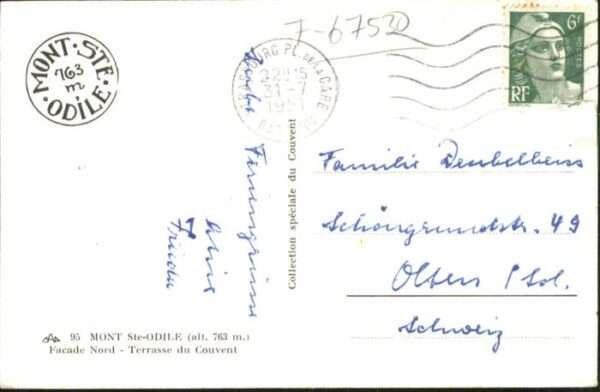 MONT·STE·ODILE·
763
m
7-6752D
STRASBOURG PL. DE LA GARE
22H15
31-7
1951
6F
RF
Feriengrüsse
Frieda
Collection spéciale du Couvent
Familie Deubelbeiss
Schöngrundstr. 49
Olten / Sol.
Schweiz
95 MONT Ste-ODILE (alt. 763 m.)
Facade Nord - Terrasse du Couvent